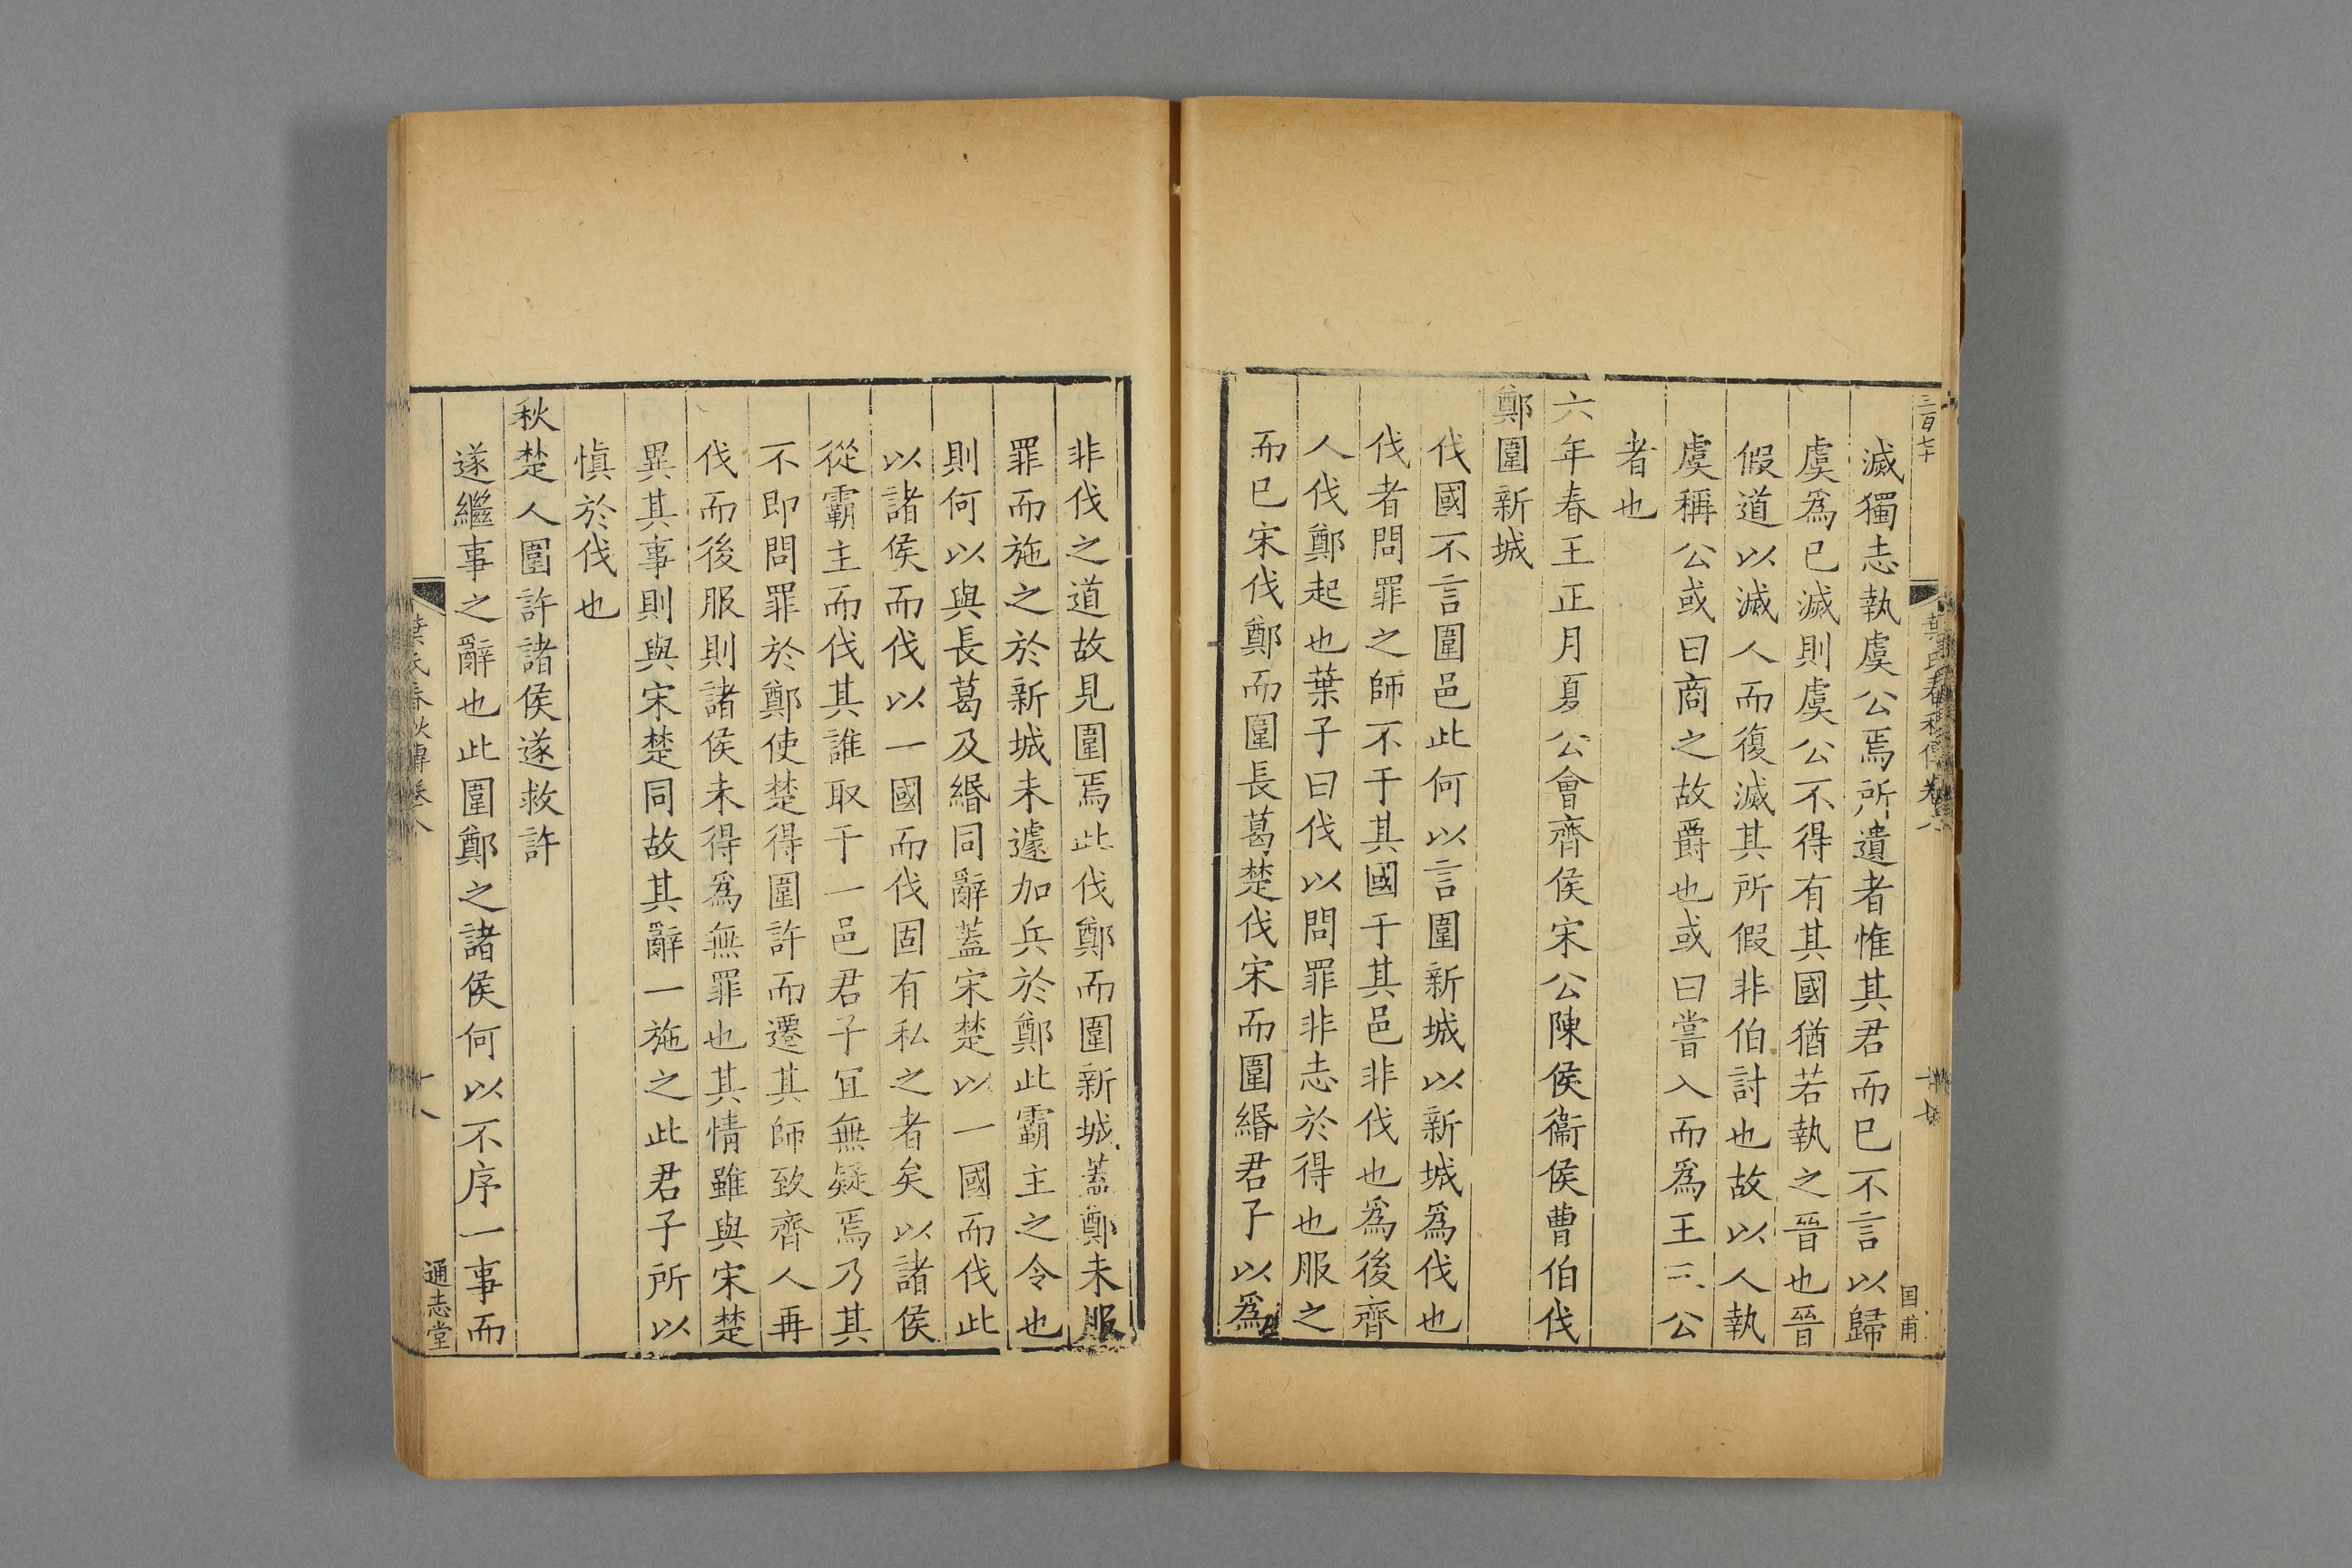 三百七十
葉氏春秋傳卷八
国甫
滅獨志執虞公焉所遺者惟其君而已不言以歸
虞爲已滅則虞公不得有其國猶若執之晉也晉
假道以滅人而復滅其所假非伯討也故以人執
虞稱公或曰商之故爵也或曰嘗入而爲王三公
者也
六年春王正月夏公會齊侯宋公陳侯衞侯曹伯伐
鄭圍新城
伐國不言圍邑此何以言圍新城以新城爲伐也
伐者問罪之師不于其國于其邑非伐也爲後齊
人伐鄭起也葉子曰伐以問罪非志於得也服之
而已宋伐鄭而圍長葛楚伐宋而圍緡君子以爲
非伐之道故見圍焉此伐鄭而圍新城蓋鄭未服
罪而施之於新城未遽加兵於鄭此霸主之令也
則何以與長葛及緡同辭蓋宋楚以一國而伐此
以諸侯而伐以一國而伐固有私之者矣以諸侯
從霸主而伐其誰取于一邑君子冝無疑焉乃其
不即問罪於鄭使楚得圍許而遷其師致齊人再
伐而後服則諸侯未得爲無罪也其情雖與宋楚
異其事則與宋楚同故其辭一施之此君子所以
愼於伐也
秋楚人圍許諸侯遂救許
遂繼事之辭也此圍鄭之諸侯何以不序一事而
葉氏春秋傳卷八
十八
通志堂